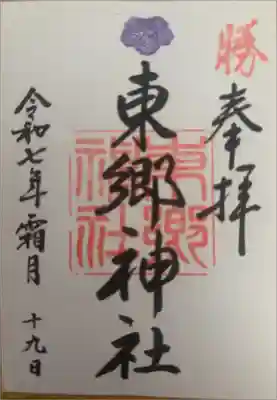 勝
奉拝
東郷神社
東郷神社
令和七年霜月十九日